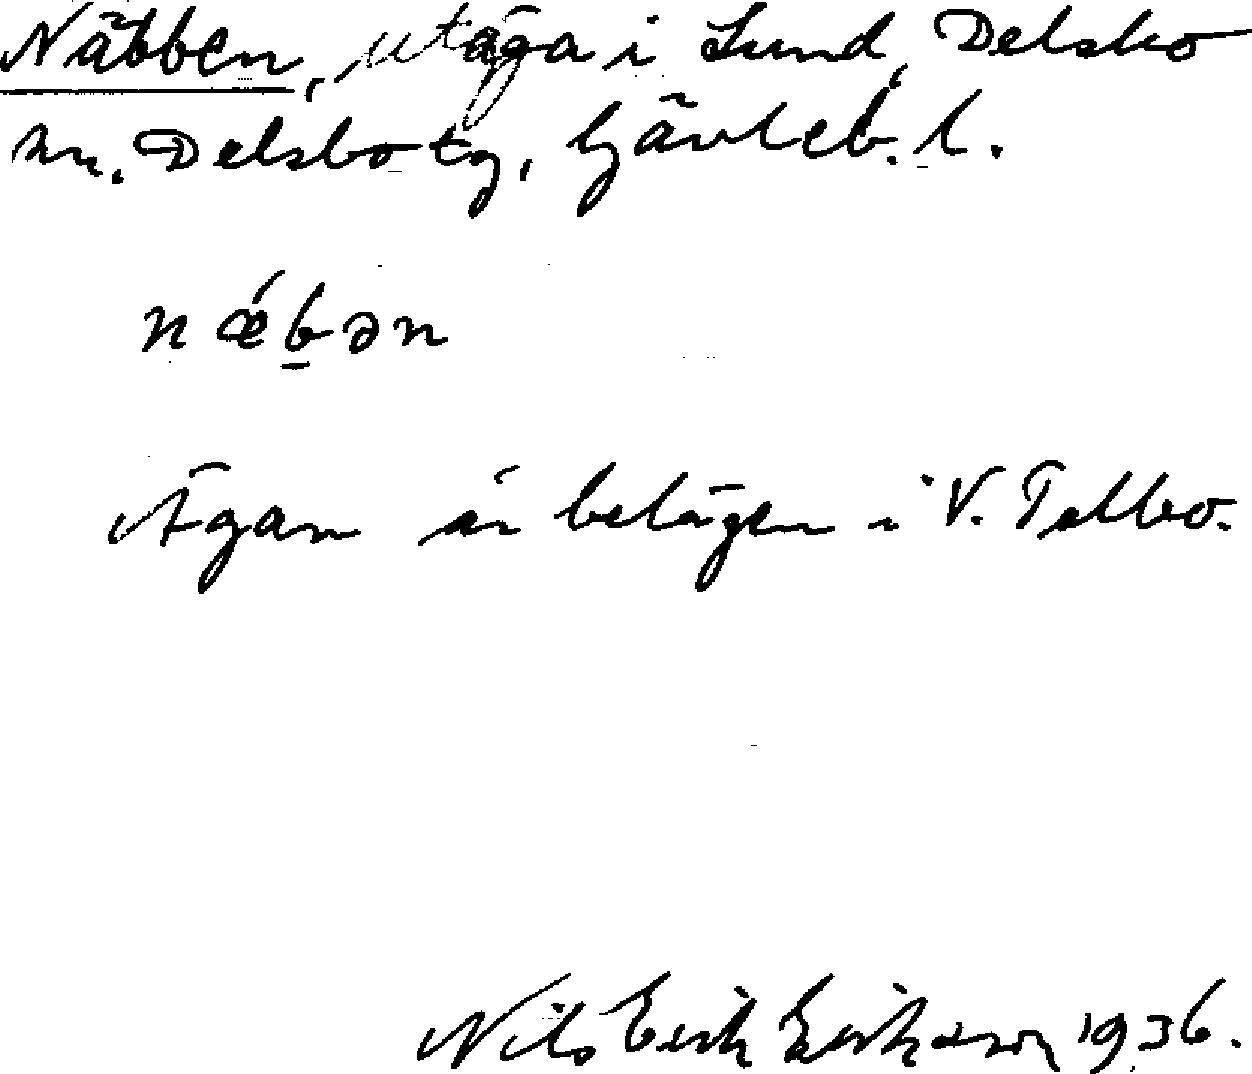 Näbben, utäga i Lund, Delsbo
sn. Delsbo tg, Gävleb. l.
nǽb̲ən
Ägan är belägen i V. Tellbo.
Nils Erik Eriksson 1936.